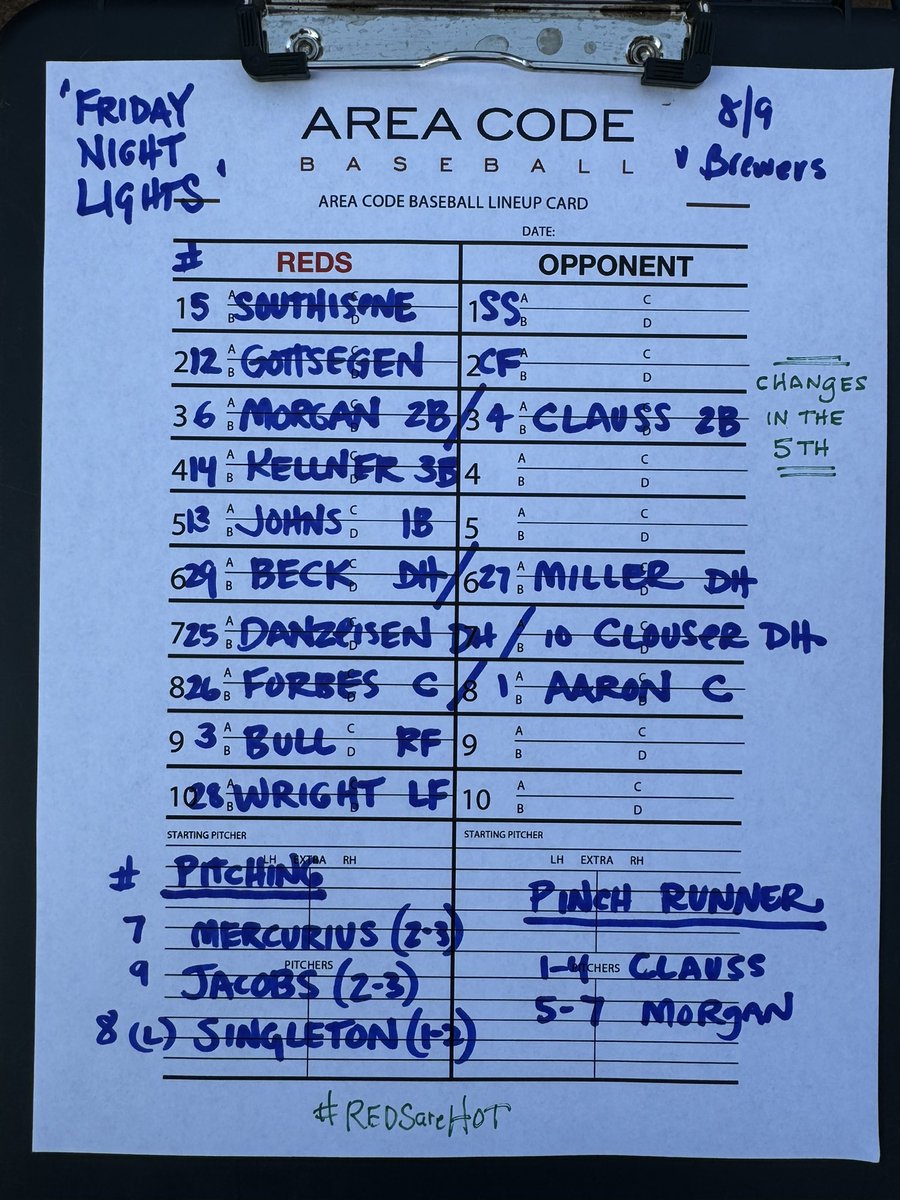 'FRIDAY
NIGHT
LIGHTS'
AREA CODE
BASEBALL
AREA CODE BASEBALL LINEUP CARD
8/9
v Brewers
DATE:
# REDS OPPONENT
1 5 A B SOUTHISENE C D 1 SS A B C D
2 12 A B GOTTSEGEN C D 2 CF A B C D
3 6 A B MORGAN 2B / 3 4 A B CLAUSS 2B
4 14 A B KELLNER 3B 4 A B C D
5 13 A B JOHNS C D 1B 5 A B C D
6 29 A B BECK DH / 6 27 A B MILLER DH
7 25 A B DANZEISEN DH / 7 B 10 CLOUSER DH
8 26 A B FORBES C / 8 1 A B AARON C
9 3 A B BULL C D RF 9 A B C D
10 28 A B WRIGHT LF 10 A B C D
CHANGES
IN THE
5TH
STARTING PITCHER STARTING PITCHER
LH EXTRA RH LH EXTRA RH
# PITCHING
7 MERCURIUS (2-3)
PITCHERS
9 JACOBS (2-3)
8 (L) SINGLETON (1-2)
PINCH RUNNER
PITCHERS
1-4 CLAUSS
5-7 MORGAN
#REDSareHOT